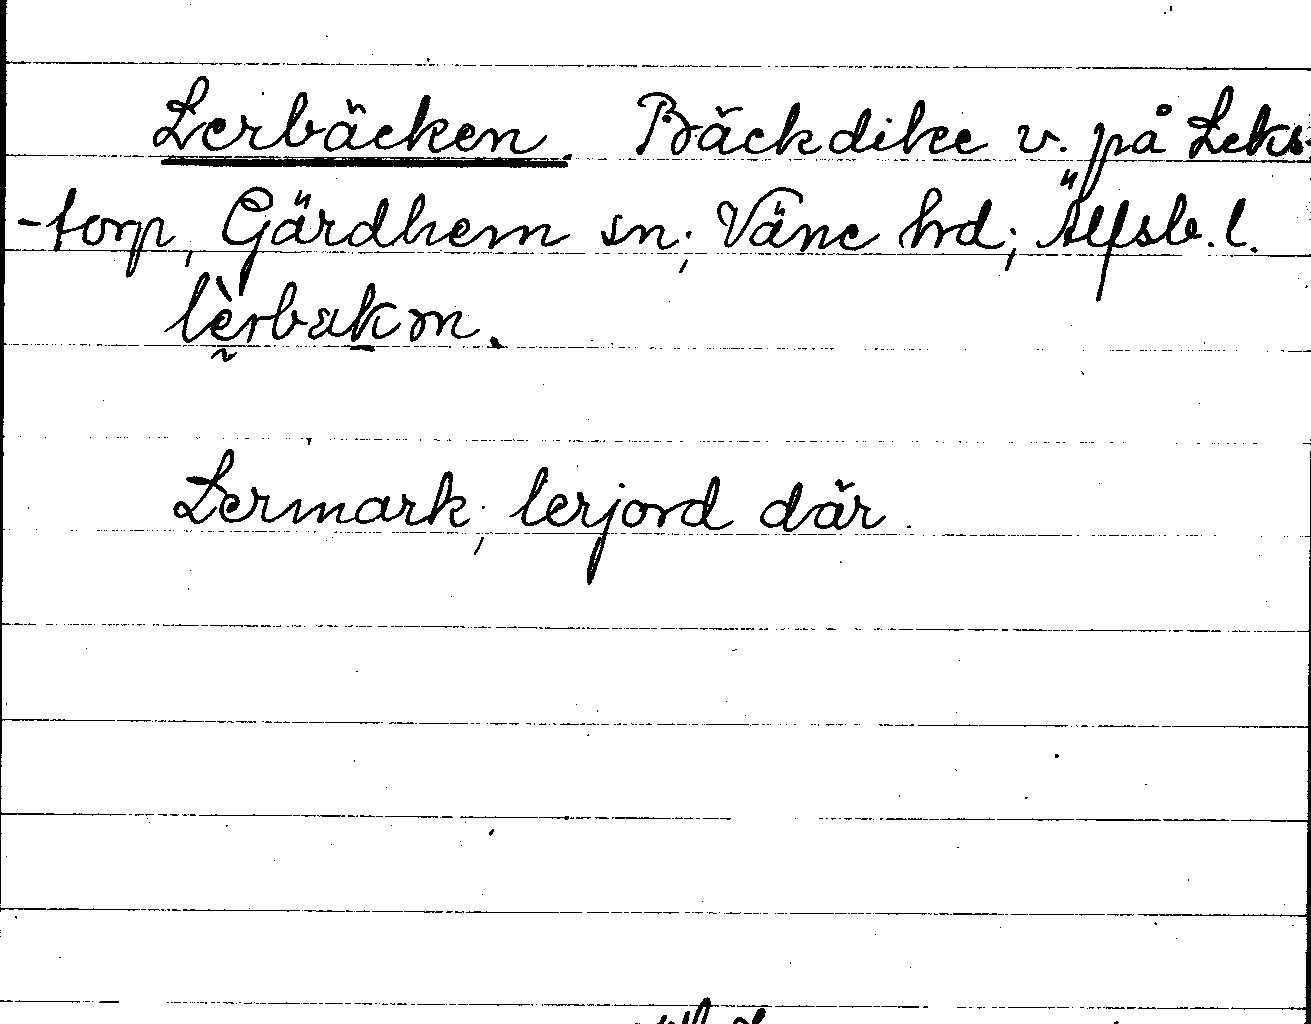 Lerbäcken. Bäckdike v. på Leks-
-torp, Gärdhem sn; Väne hd; Älfsb. l.
lḛ̀rbakm.
Lermark; lerjord där.